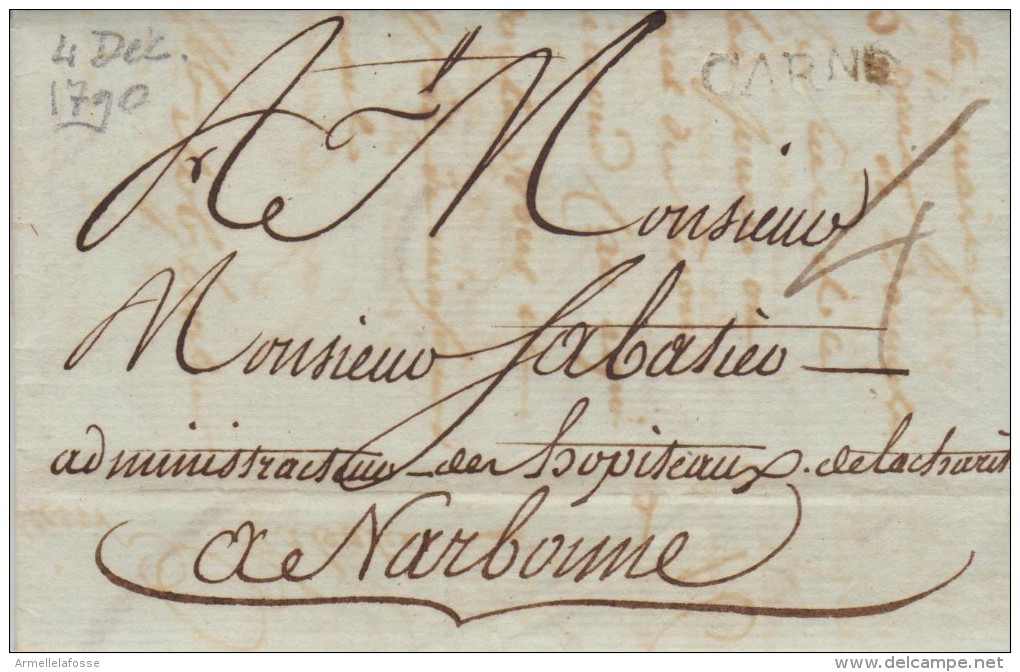 4 Dek.
1790
CARNE
A Monsieur
Monsieur Sabatier
administrateur des hopiteaux de la charit
a Narbonne
4
Armellelafosse
www.delcampe.net